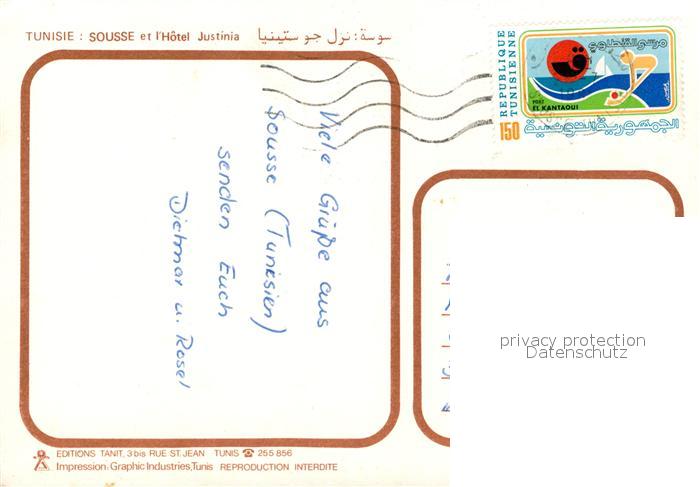 TUNISIE : SOUSSE et l'Hôtel Justinia سوسة : نزل جوستينيا
REPUBLIQUE
TUNISIENNE
مرسى القنطاوي
PORT
EL KANTAOUI
150
الجمهورية التونسية
Viele Grüße aus
Sousse (Tunesien)
senden Euch
Dietmar u. Rosel
privacy protection
Datenschutz
EDITIONS TANIT, 3 bis RUE ST. JEAN TUNIS ☎ 255 856
Impression: Graphic Industries, Tunis REPRODUCTION INTERDITE